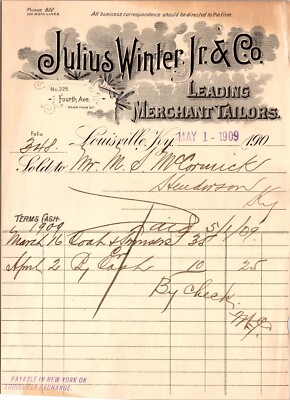 PHONE 822
ON BOTH LINES
All business correspondence should be directed to the firm.
Julius Winter, Jr. & Co.
No. 228
Fourth Ave.
NEAR MAIN ST.
LEADING
MERCHANT TAILORS.
Folio
348.
Louisville, Ky. MAY 1 - 1909 190
Sold to Mr. M. S. McCormick
Henderson
Ky
TERMS CASH.
1909 Paid 5/1/09.
March 16 Coat & Trousers 35
April 2 By Cash 10 25
By Check.
PAYABLE IN NEW YORK OR
LOUISVILLE EXCHANGE.